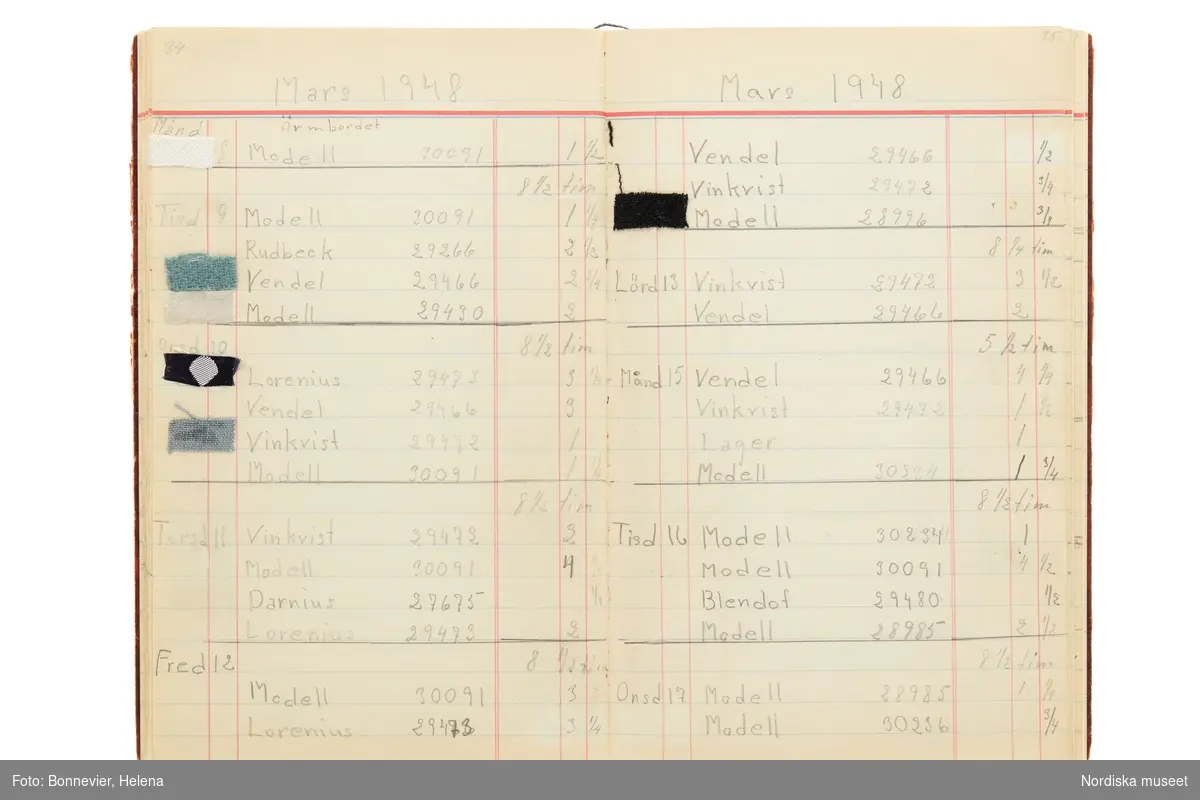 34
Mars 1948
Månd
Ärmbordet
Modell 30091 1 1/2
8 1/2 tim
Tisd 9 Modell 30091 1
Rudbeck 29266 2 1/2
Vendel 29466 2
Modell 29430 2
8 1/2 tim
Lorenius 29473 3
Vendel 29466 3
Vinkvist 29472 1
Modell 30091 1
8 1/2 tim
Torsd 11 Vinkvist 29472 2
Modell 30091 4
Darnius 27675
Lorenius 29473 2
Fred 12 8 1/2 tim
Modell 30091 3
Lorenius 29473 3 1/4
35
Mars 1948
Vendel 29466 1/2
Vinkvist 29472 3/4
Modell 28996
8 tim
Lörd 13 Vinkvist 29472 3 1/2
Vendel 29466 2
5 1/2 tim
Månd 15 Vendel 29466 4
Vinkvist 29472 1 1/2
Lager 1
Modell 1 3/4
8 1/2 tim
Tisd 16 Modell 30234 1
Modell 30091 4 1/2
Blendof 29480 1/2
Modell 28985 2 1/2
8 1/2 tim
Onsd 17 Modell 28985 1
Modell 30236 3/4
Foto: Bonnevier, Helena
Nordiska museet